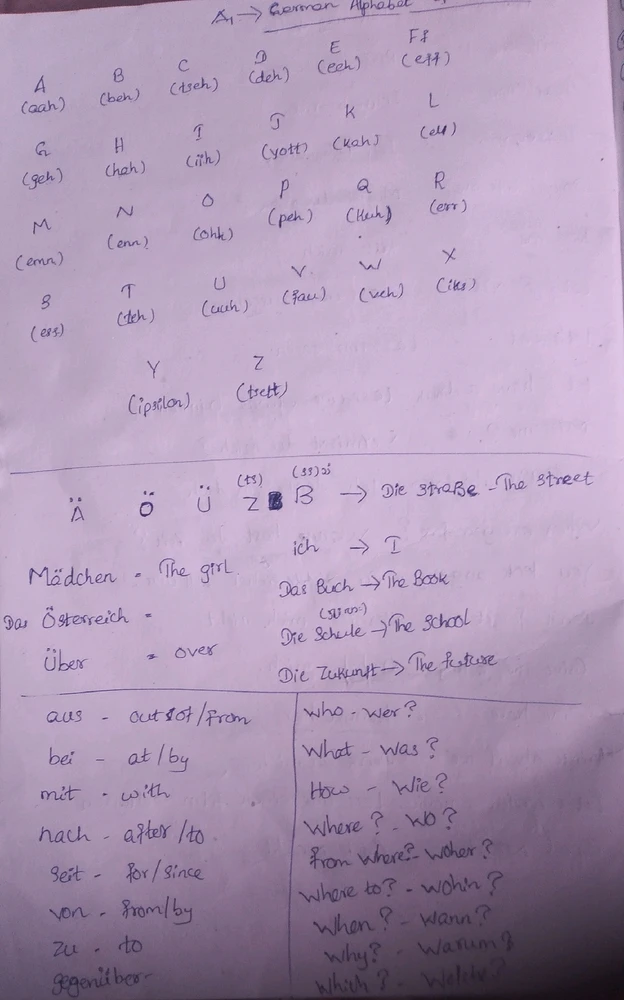 A1 → German Alphabet
A B C D E Ff
(aah) (beh) (tseh) (deh) (eeh) (eff)
G H I J K L
(geh) (hah) (iih) (yott) (kah) (ell)
M N O P Q R
(emn) (enn) (ohh) (peh) (kuh) (err)
S T U V W X
(ess) (teh) (uuh) (fau) (veh) (iks)
Y Z
(ipsilon) (tsett)
(ts) (ss)
Ä Ö Ü Z ß → Die straße - The street
ich → I
Mädchen = The girl
Das Buch → The Book
Das Österreich =
Die Schule → The School
Über = over
Die Zukunft → The future
aus - out of/from
bei - at/by
mit - with
nach - after/to
seit - for/since
von - from/by
zu - to
gegenüber -
Who - Wer?
What - Was?
How - Wie?
Where? - Wo?
From where? - Woher?
Where to? - Wohin?
When? - Wann?
Why? - Warum?
Which? - Welche?